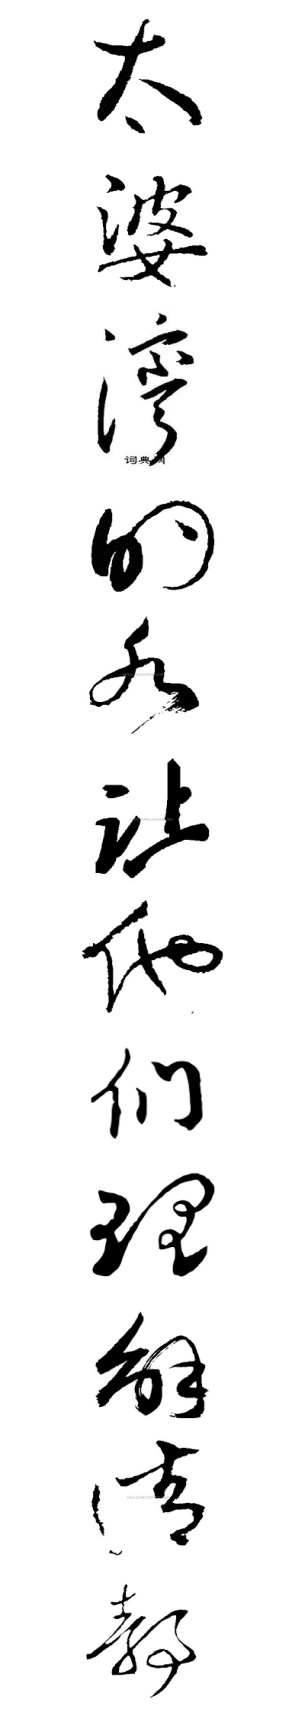 太婆湾的水让他们理解清静
词典网